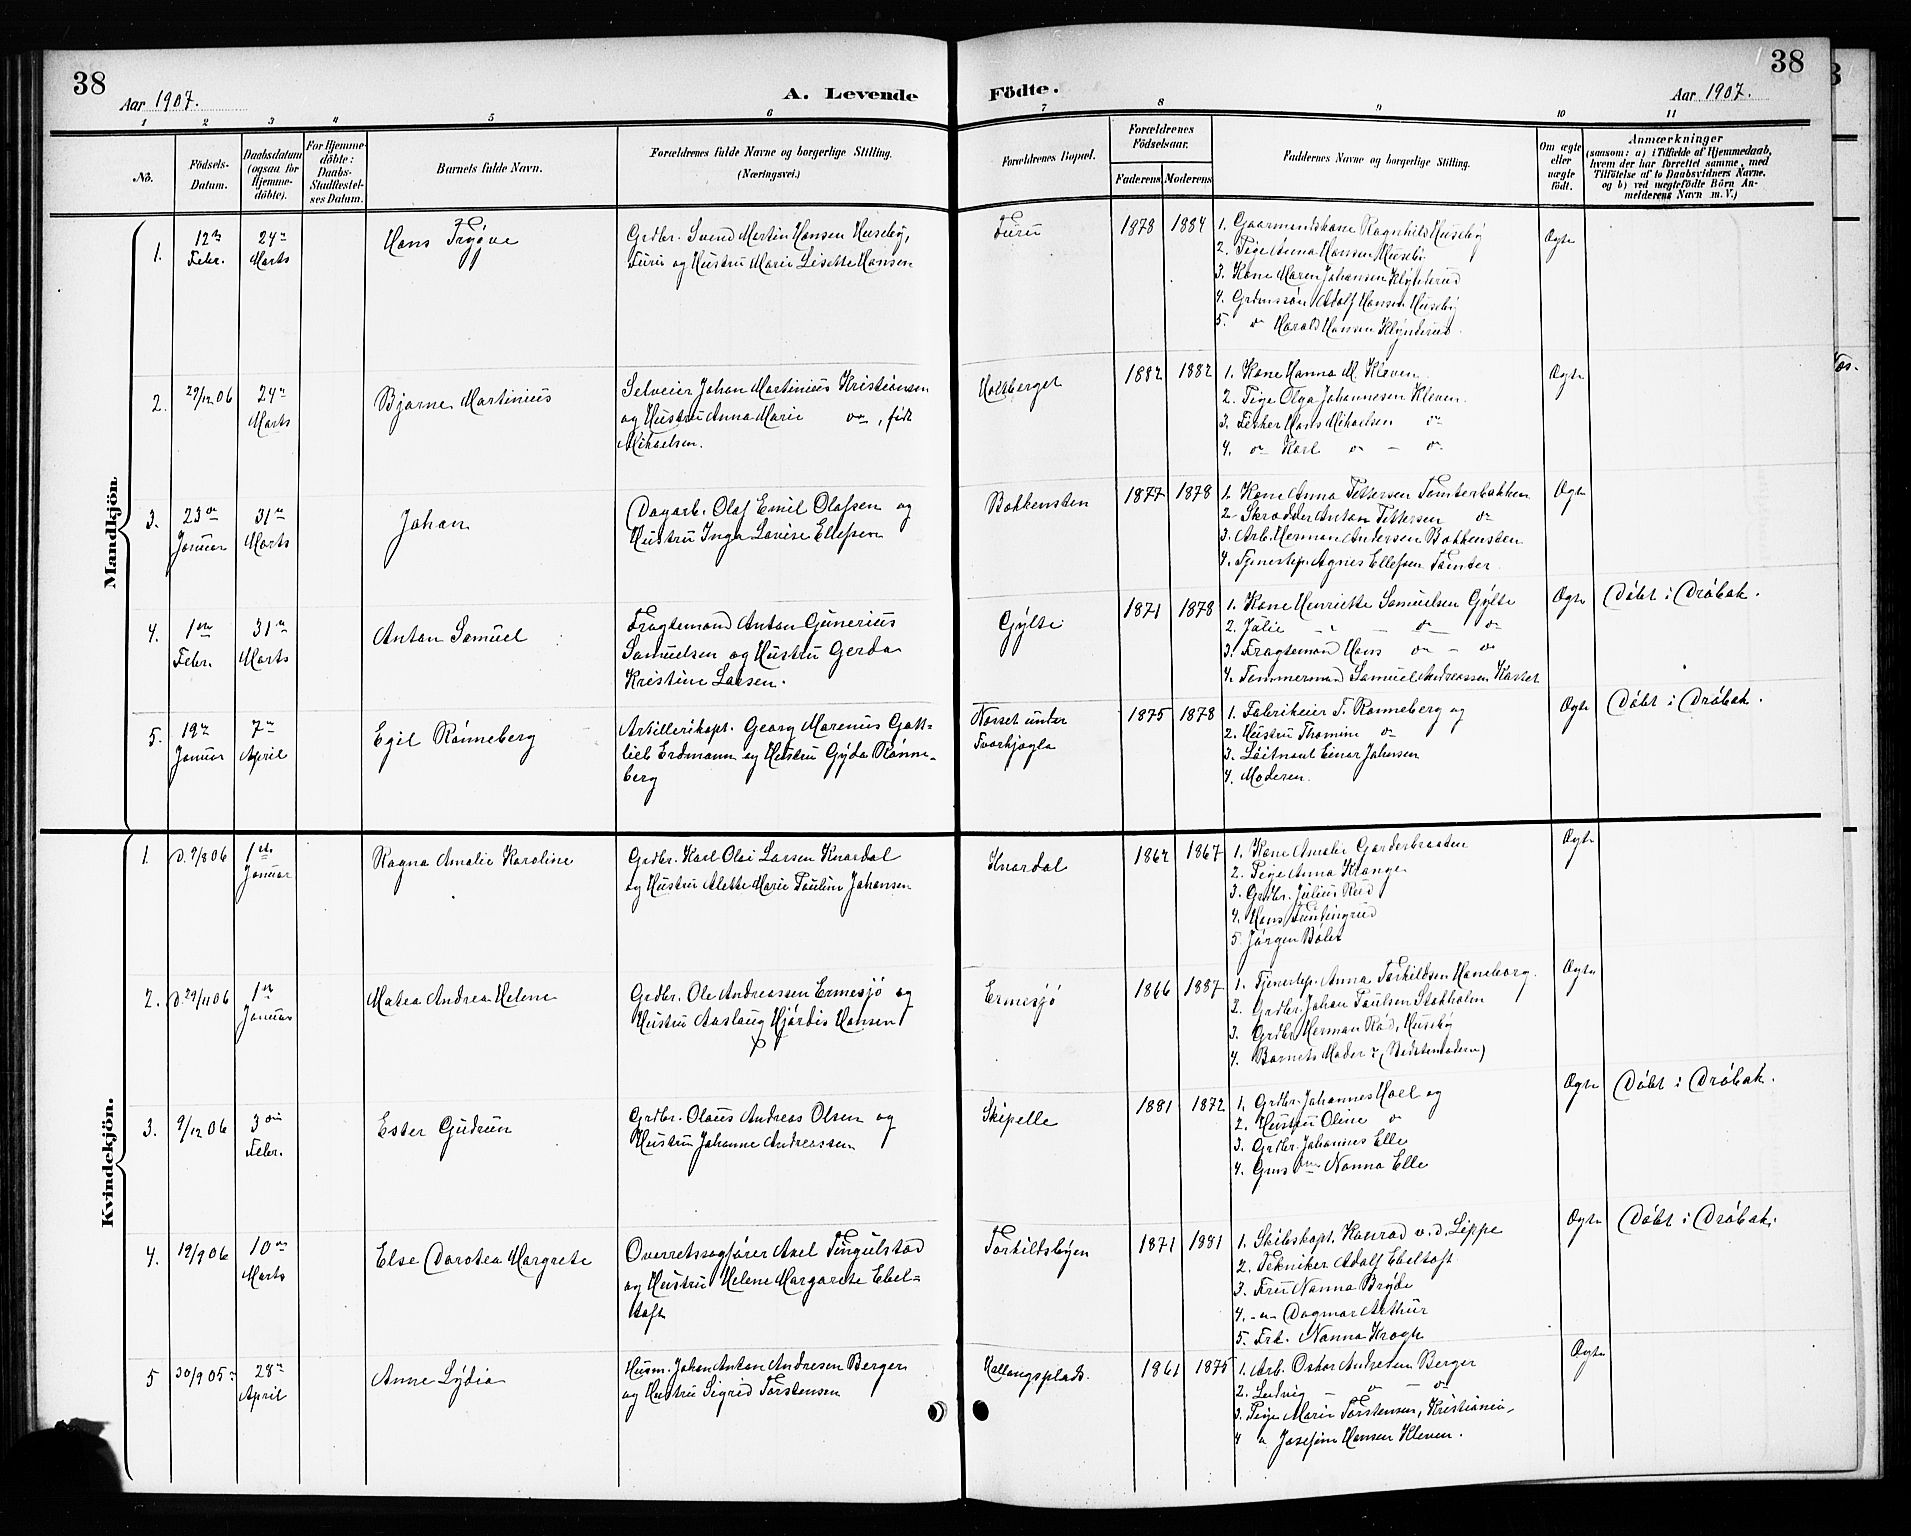 38
Aar 1907.
A. Levende
Födte.
38
Aar 1907.
1 2 3 4 5 6 7 8 9 10 11
No.
Födsels-Datum.
Daabsdatum (ogsaa for Hjemme-döbte).
For Hjemme-döbte: Daabs-Stadfæstel-ses Datum.
Barnets fulde Navn.
Forældrenes fulde Navne og borgerlige Stilling.
(Næringsvei.)
Forældrenes Bopæl.
Forældrenes Födselsaar.
Faderens Moderens
Faddernes Navne og borgerlige Stilling.
Om ægte eller uægte födt.
Anmærkninger
(saasom: a) i Tilfælde af Hjemmedaab, hvem der har forrettet samme, med Tilföielse af to Daabsvidners Navne, og b) ved uægtefödte Börn An-melderens Navn m. V.)
Mandkjön.
1.
12te Febr.
24de Marts
Hans Trygve
Grdbr. Svend Martin Hansen Huseby,
Furu og Hustru Marie Lisette Hansen
Furu
1878 1884
1. Gaarmandskone Ragnhild Huseby
2. Pige Anna Hansen Huseby
3. Kone Maren Johansen Klynderud
4. Grdmssøn Adolf Hansen Huseby
5. do Harald Hansen Klynderud.
Ægte
2.
29/12 06
24de Marts
Bjarne Martinius
Selveier Johan Martinius Kristiansen
og Hustru Anna Marie do, født
Mikaelsen.
Holtberget
1882 1882
1. Kone Hanna M. Kleven
2. Pige Olga Johannesen Kleven.
3. Fisker Hans Mikaelsen do
4. do Karl do - do
Ægte
3.
23de Januar
31te Marts
Johan
Dagarb. Olaf Emil Olafsen og
Hustru Inga Lovise Ellefsen
Bakkensten
1877 1878
1. Kone Anna Pettersen Tomterbakken
2. Skrædder Anton Pettersen do
3. Arb. Herman Andersen Bakkensten
4. Tjenestep. Agnes Ellefsen Tomter.
Ægte
4.
1ste Febr.
31te Marts
Anton Samuel
Fragtemand Anton Gunerius
Samuelsen og Hustru Gerda
Kristine Larsen.
Gylte
1871 1878
1. Kone Henriette Samuelsen Gylte
2. Julie - do do
3. Fragtemand Hans do - do
4. Tømmermand Samuel Andreassen Kastet
Ægte
Døbt i Drøbak.
5.
19de Januar
7de April
Egil Rønneberg
Artillerikapt. Georg Marenus Gott-
lieb Erdmann og Hustru Gyda Rønne-
berg
Nasset under
Tvorkjagla
1875 1878
1. Fabrikeier T. Rønneberg og
2. Hustru Thomine do
3. Løitnant Einar Johnsen
4. Moderen.
Ægte
Døbt i Drøbak.
Kvindekjön.
1.
D. 9/8 06
1ste Januar
Ragna Amalie Karoline
Grdbr. Karl Olai Larsen Knardal
og Hustru Alette Marie Pauline Johansen
Knardal
1862 1867
1. Kone Amalie Garderbraaten
2. Pige Anna Krange
3. Grdbr. Julius Rud
4. Hans
5. Jørgen Bølet
Ægte
2.
D. 29/11 06
1ste Januar
Matea Andrea Helene
Grdbr. Ole Andreassen Ermesjø og
Hustru Aaslaug Hjørdis Hansen
Ermesjø
1866 1887
1. Tjenestep. Anna Torkildsen Haneborg.
2. Grdbr. Johan Paulsen Stokholm
3. Grdbr. Herman Rød, Huseby
4. Barnets Moder (Bedstemoderen)
Ægte
3.
9/12 06
3die Febr.
Ester Gudrun
Grdbr. Olaus Andreas Olsen og
Hustru Johanne Andreassen
Skipelle
1881 1872
1. Grdbr. Johannes Hael og
2. Hustru Oline do
3. Grdbr. Johannes Elle
4. Nanna Elle
Ægte
Døbt i Drøbak.
4.
12/9 06
10de Marts
Else Dorotea Margrete
Overretssagfører Axel Tingulstad
og Hustru Helene Margarete Ebel-
toft
Torkildsbyen
1871 1881
1. Skibskapt. Konrad v. d. Lippe
2. Tekniker Adolf Ebeltoft
3. Fru Nanna Bryde
4. -"- Dagmar Arthur
5. Frk. Nanna Krogh
Ægte
Døbt i Drøbak.
5
30/9 05
28de April
Anne Lydia
Husm. Johan Anton Andresen Berger
og Hustru Sigrid Torstensen
Hallangsplads.
1861 1875
1. Arb. Oskar Andresen Berger
2. Ludvig - do - do
3. Pige Marie Torstensen, Kristiania
4 " Josefine Hansen Kleven.
Ægte